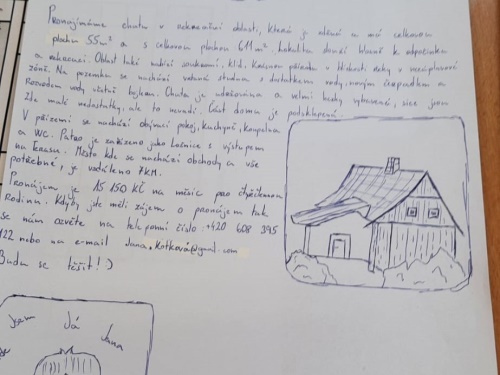 Pronajímáme chatu v rekreační oblasti, která je oděná a má celkovou
plochu 55m² a s celkovou plochou 611m². Lokalita slouží hlavně k odpočinku
a rekreaci. Oblast také nabízí soukromí, klid. Krásnou přírodu v blízkosti řeky v
zóně. Na pozemku se nachází vrtaná studna s dostatkem vody, novým čerpadlem a
Rozvodem vody včetně bojleru. Chata je udržována a velmi hezky vybavená, sice jsou
zde malé nedostatky, ale to nevadí. Část domu je podsklepená.
V přízemí se nachází obývací pokoj, kuchyně, koupelna
a WC. Patro je zařízeno jako Ložnice s výstupem
na Terasu. Město kde se nachází obchody a vše
potřebné, je vzdáleno 7KM.
Pronájem je 15 150 KČ na měsíc pro čtyřčlennou
Rodinu. Kdyby jste měli zájem o pronájem tak
se nám ozvěte na telefonní číslo +420 608 395
122 nebo na e-mail Jana.Kotková@gmail.com
Budu se těšit! :)
jsem Já Jana